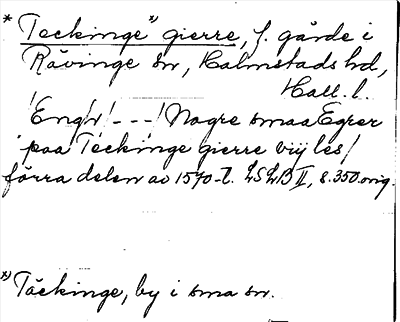 * Teckinge" *) gierre, f. gärde i
Rävinge sn, Halmstads hd,
Hall. l.
/Engh/ - - -/ Nogre smaa Egrer
paa Teckinge gierre viij les/
förra delen av 1570-t. LSLB II, s. 350. orig.
*) Täckinge, by i sma sn.